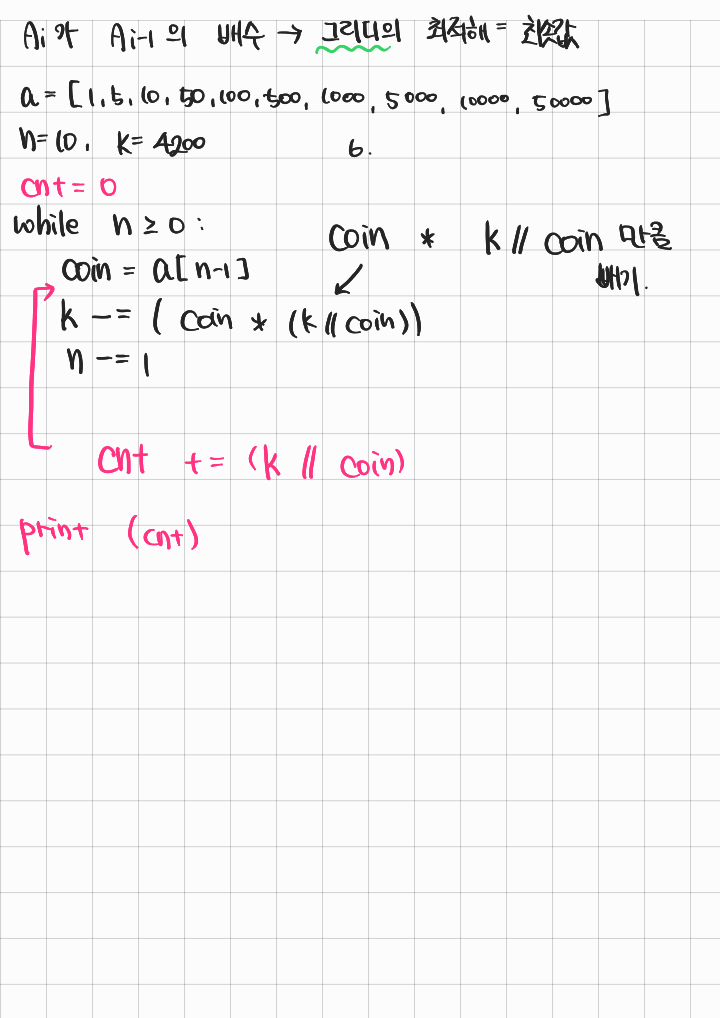 Ai가 Ai-1의 배수 → 그리디의 최적해 = 최솟값
a = [1, 5, 10, 50, 100, 500, 1000, 5000, 10000, 50000]
n=10, k= 4200 6.
cnt = 0
while n ≥ 0 :
coin * k // coin 만큼
빼기.
coin = a[n-1]
k -= ( coin * (k // coin))
n -= 1
cnt += (k // coin)
print (cnt)